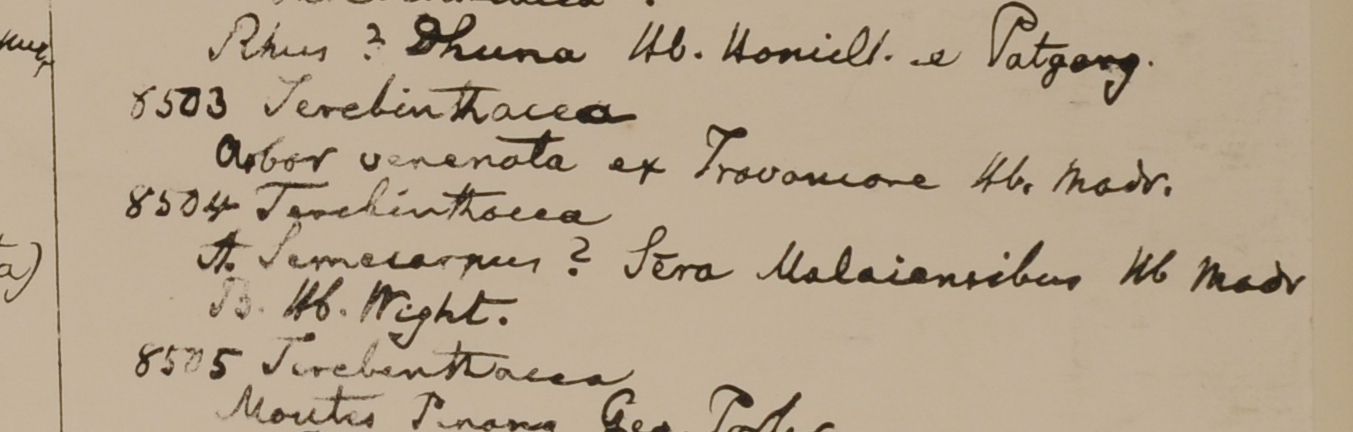 Rhus ? Dhuna Hb. Hamilt. e Patgong.
8503 Terebinthacea
Arbor venenata ex Travancore Hb. Madr.
8504 Terebinthacea
A. Semecarpus ? Sēra Malaiensibus Hb Madr
B. Hb. Wight.
8505 Terebinthacea
Montes Penang Geo.